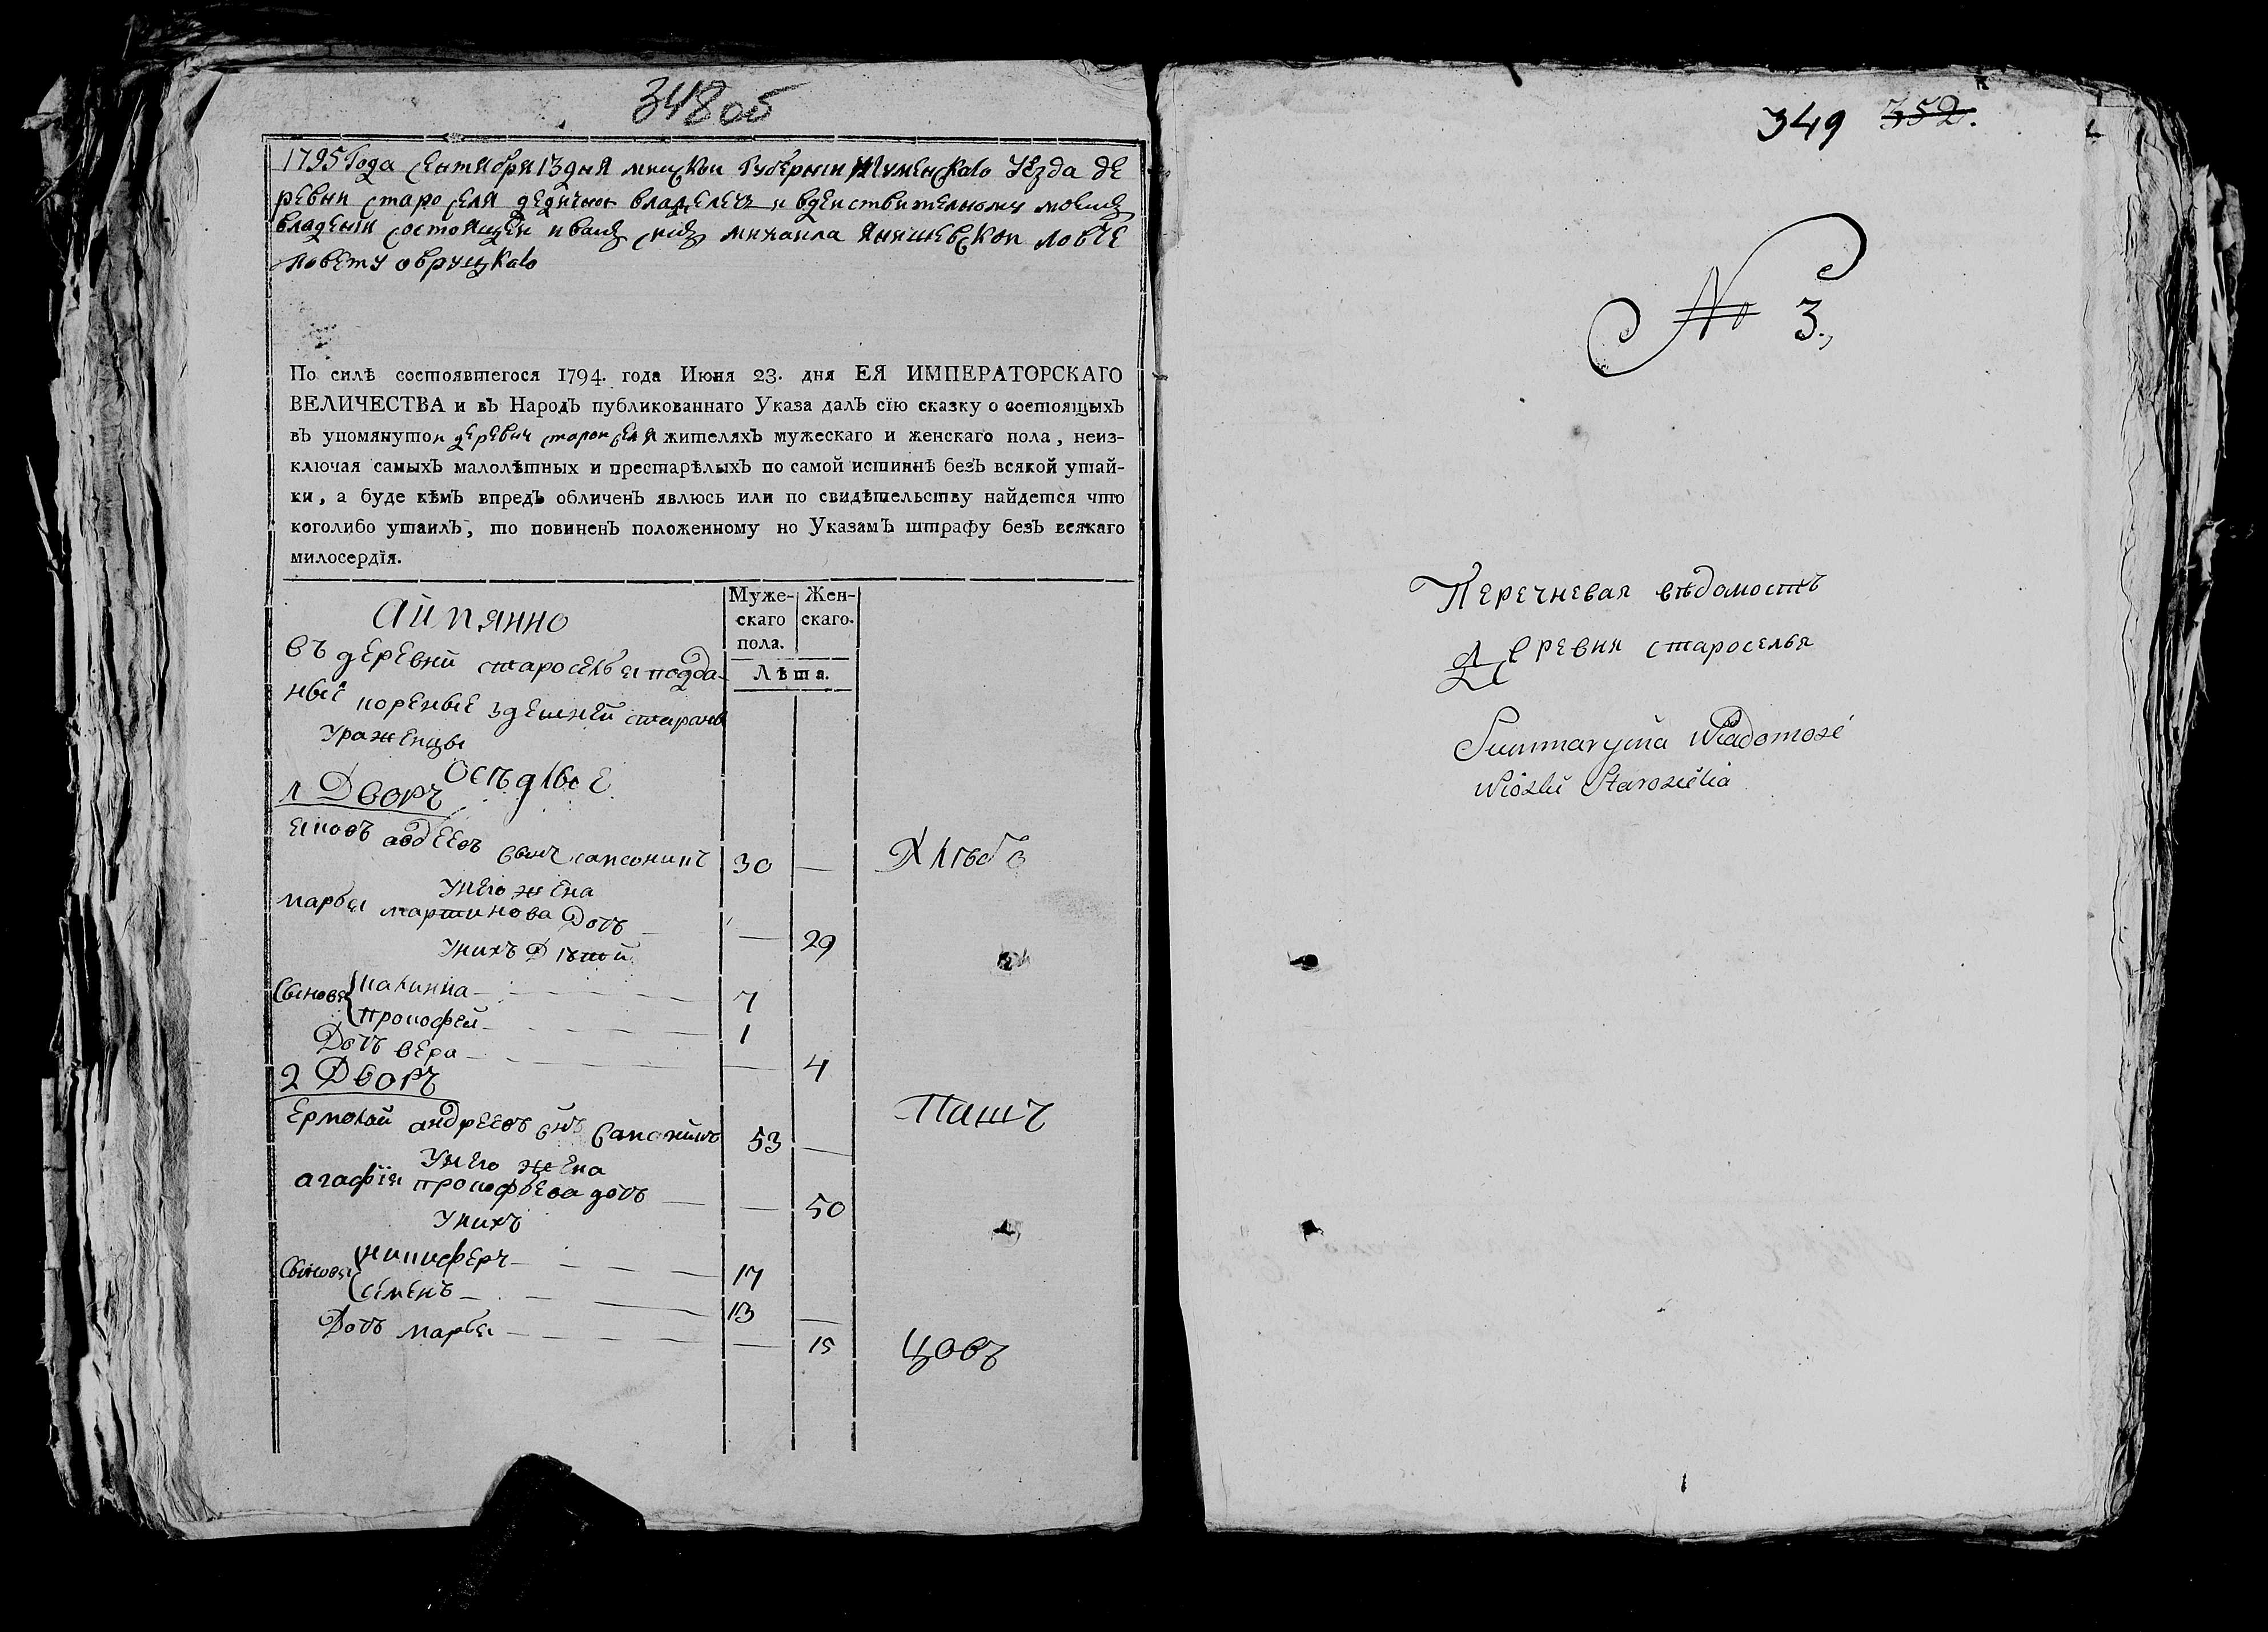 348об
1795 Года Сентября 13 дня минской Губернии Игуменскаго Уѣзда де
ревни старо селя дедичной владелецъ и вдеиствителному моемъ
владении состоящеи иванъ михаила ловче
повету овруцкаго
По силѣ состоявшегося 1794. года Июня 23. дня ЕЯ ИМПЕРАТОРСКАГО
ВЕЛИЧЕСТВА и въ Народъ публикованнаго Указа далъ сїю сказку о состоящыхъ
въ упомянутои деревни старои селя жителяхъ мужескаго и женскаго пола, неиз-
ключая самыхъ малолѣтныхъ и престарѣлыхъ по самой истиннѣ безъ всякой утай-
ки, а буде кѣмъ впредь обличенъ явлюсь или по свидѣтельству найдется что
коголибо утаилъ, то повиненъ положенному по Указамъ штрафу безъ всякаго
милосердїя.
Муже- Жен-
скаго скаго.
пола.
Лѣта.
въ деревни старосельяподда
ные
Ураженцы
1 Дворъ
авдеевъ сынъ 30 —
Хлѣбо
Унего жена
марья мартинова дочь — 29
Унихъ Дѣтей
Сыновя
прокофей 1
Дочь вера — 4
2 Дворъ
Пашъ
Ермолай андреевъ снъ 53 —
Унего жена
агафїя прокофьева дочь — 50
Унихъ
Сыновя никиферъ 17
семенъ 13 —
Дочь марья — 15
цовъ
349 352.
No 3.
Перечневая вѣдомость
Деревни староселья
Summaryina Wiadomosć
Wiozki Starosielia